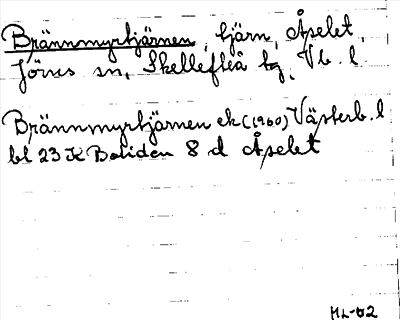 Brännmyrtjärnen, tjärn, Åselet,
Jörns sn, Skellefteå tg, Vb. l.
Brännmyrtjärnen ek (1960) Västerb. l
bl 23 K Boliden 8 d Åselet
ML-82